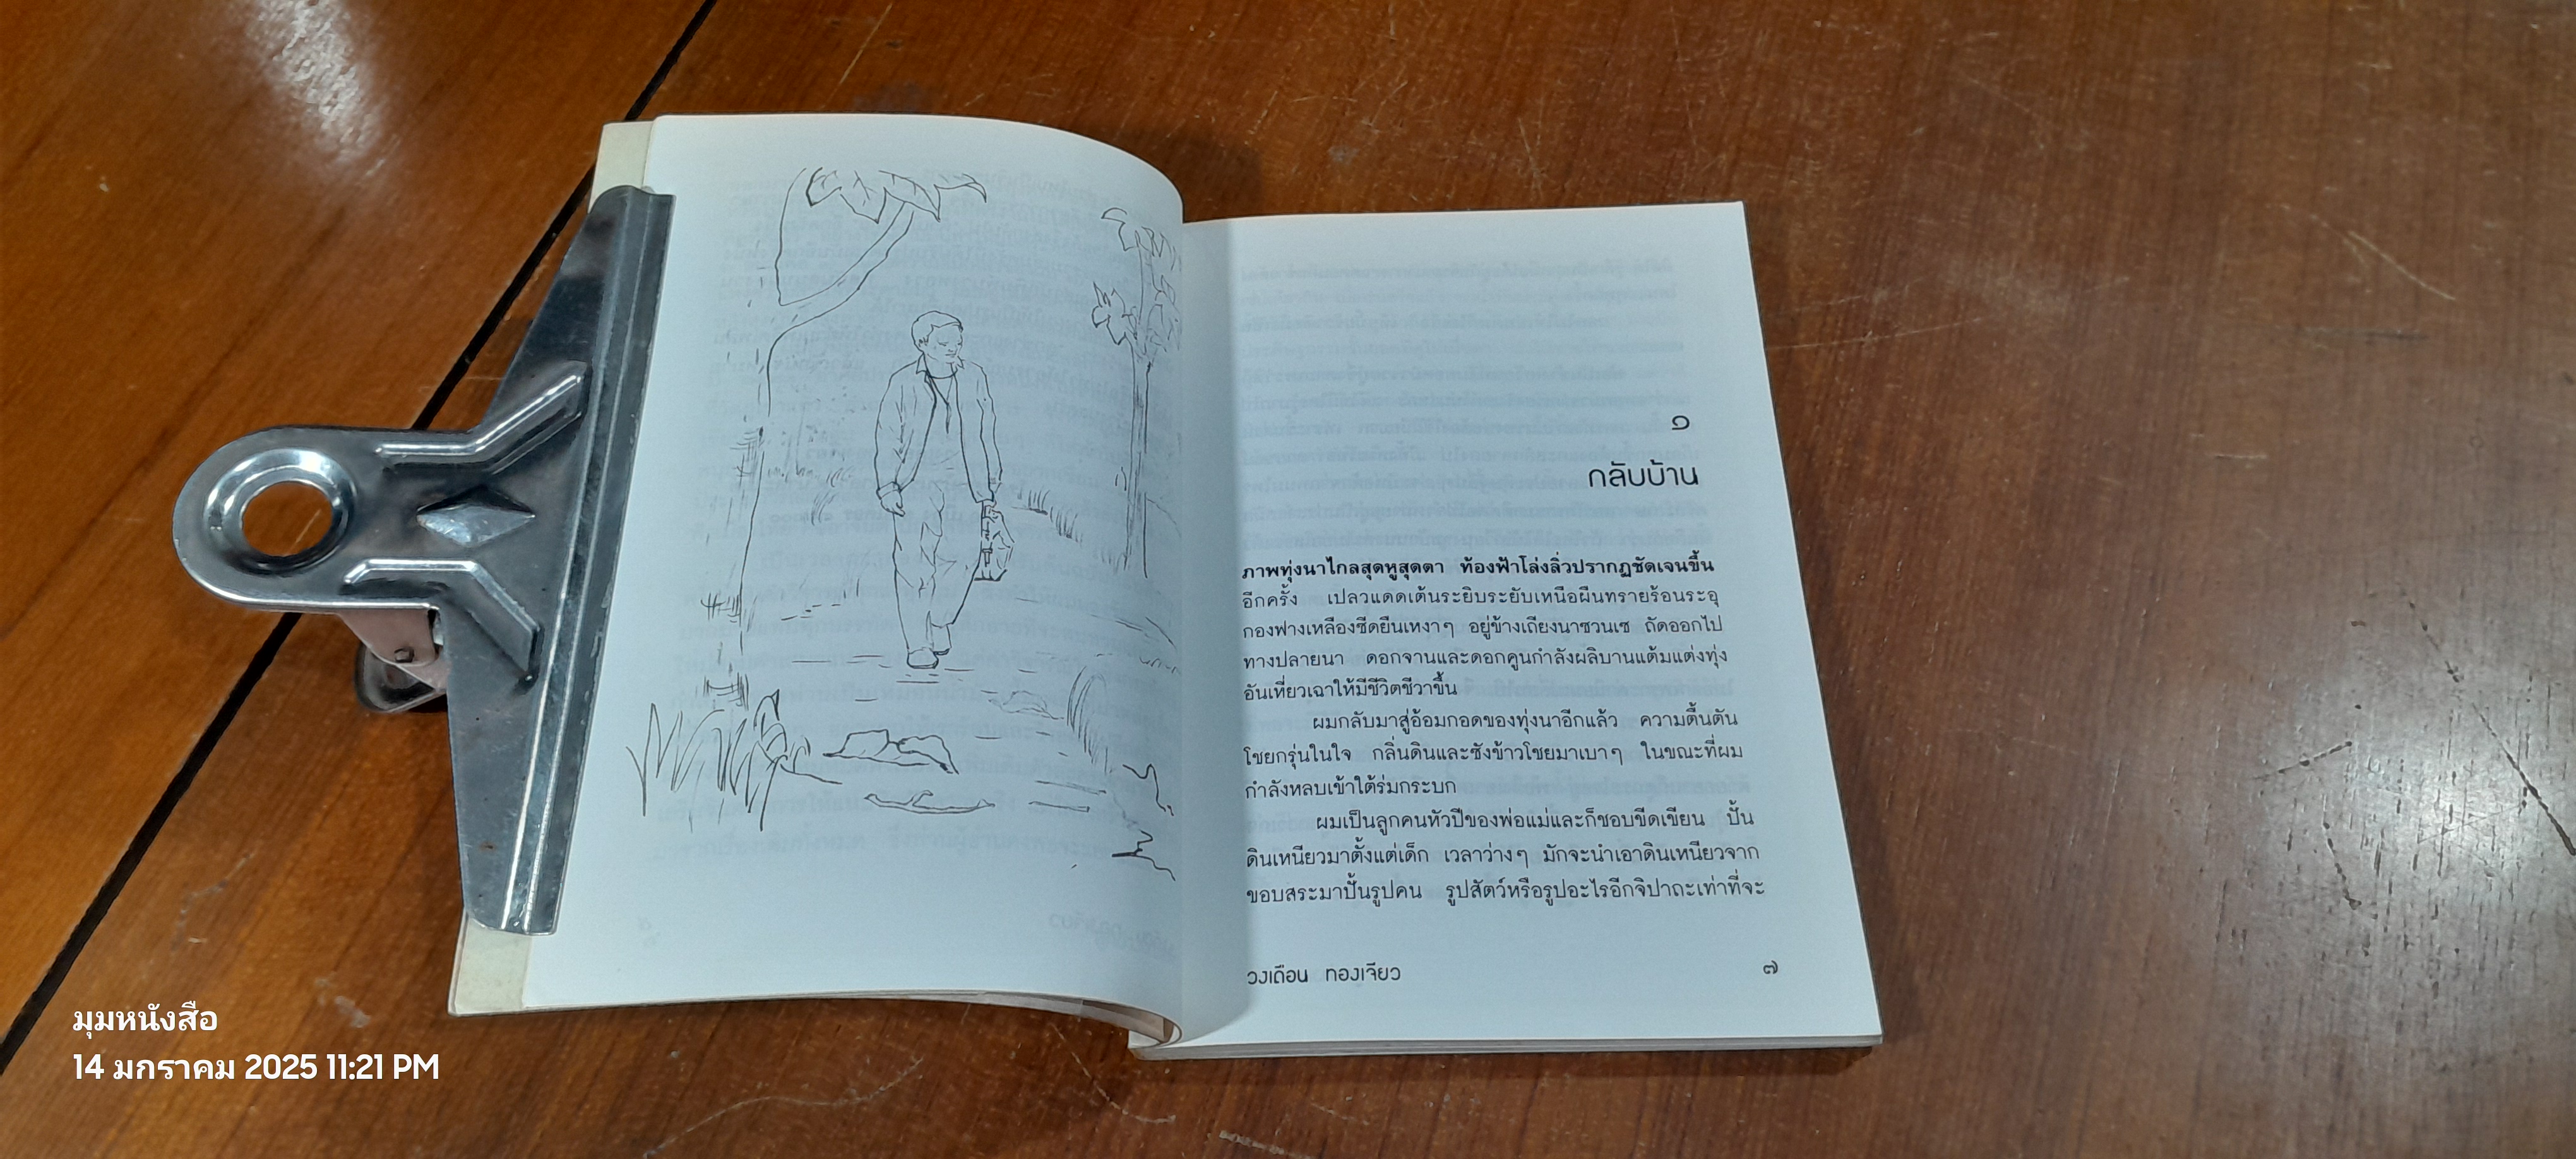 ๑
กลับบ้าน
ภาพทุ่งนาไกลสุดหูสุดตา ท้องฟ้าโล่งลิ่วปรากฏชัดเจนขึ้น
อีกครั้ง เปลวแดดเต้นระยิบระยับเหนือผืนทรายร้อนระอุ
กองฟางเหลืองซีดยืนเหงาๆ อยู่ข้างเถียงนาซวนเซ ถัดออกไป
ทางปลายนา ดอกจานและดอกคูนกำลังผลิบานแต้มแต่งทุ่ง
อันเหี่ยวเฉาให้มีชีวิตชีวาขึ้น
ผมกลับมาสู่อ้อมกอดของทุ่งนาอีกแล้ว ความตื้นตัน
โชยกรุ่นในใจ กลิ่นดินและซังข้าวโชยมาเบาๆ ในขณะที่ผม
กำลังหลบเข้าใต้ร่มกระบก
ผมเป็นลูกคนหัวปีของพ่อแม่และก็ชอบขีดเขียน ปั้น
ดินเหนียวมาตั้งแต่เด็ก เวลาว่างๆ มักจะนำเอาดินเหนียวจาก
ขอบสระมาปั้นรูปคน รูปสัตว์หรือรูปอะไรอีกจิปาถะเท่าที่จะ
วงเดือน ทองเจียว
๗
มุมหนังสือ
14 มกราคม 2025 11:21 PM